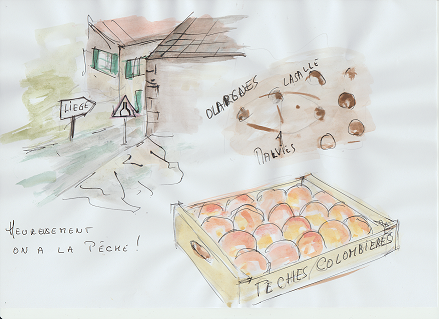 LIÈGE
OLARGUES
LASALLE
MAUVIES
HEUREUSEMENT
ON A LA PÊCHE !
PÊCHES COLOMBIÈRES